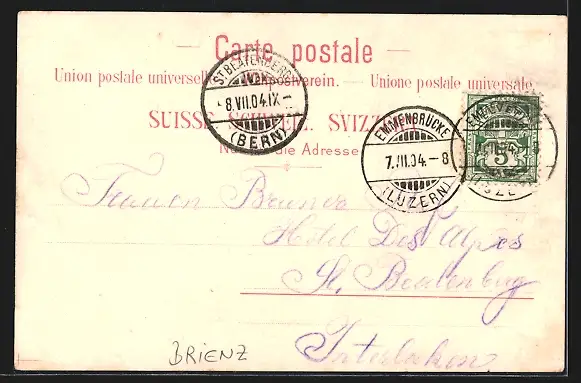 — Carte postale —
Union postale universelle. — Weltpostverein. — Unione postale universale.
SUISSE. SCHWEIZ. SVIZZERA.
Nur für die Adresse.
ST BEATENBERG
8.VII.04.IX-
(BERN)
EMMENBRÜCKE
7.VII.04.-8
(LUZERN)
5
Frauen Brunner
Hotel Des Alpes
St. Beatenberg
Interlaken
BRIENZ